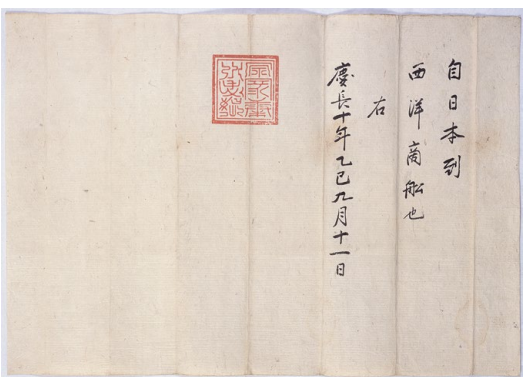 自日本到
西洋商舩也
右
慶長十年乙巳九月十一日